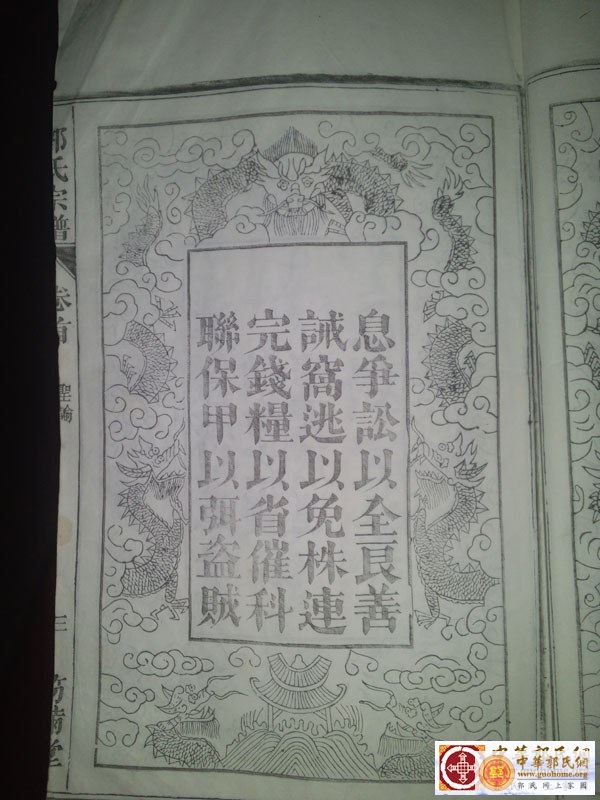 息爭訟以全良善
誡窩逃以免株連
完錢糧以省催科
聯保甲以弭盜賊
郭氏宗譜
卷首
聖諭
三
中華郭氏網
www.guohome.org
郭氏网上家園